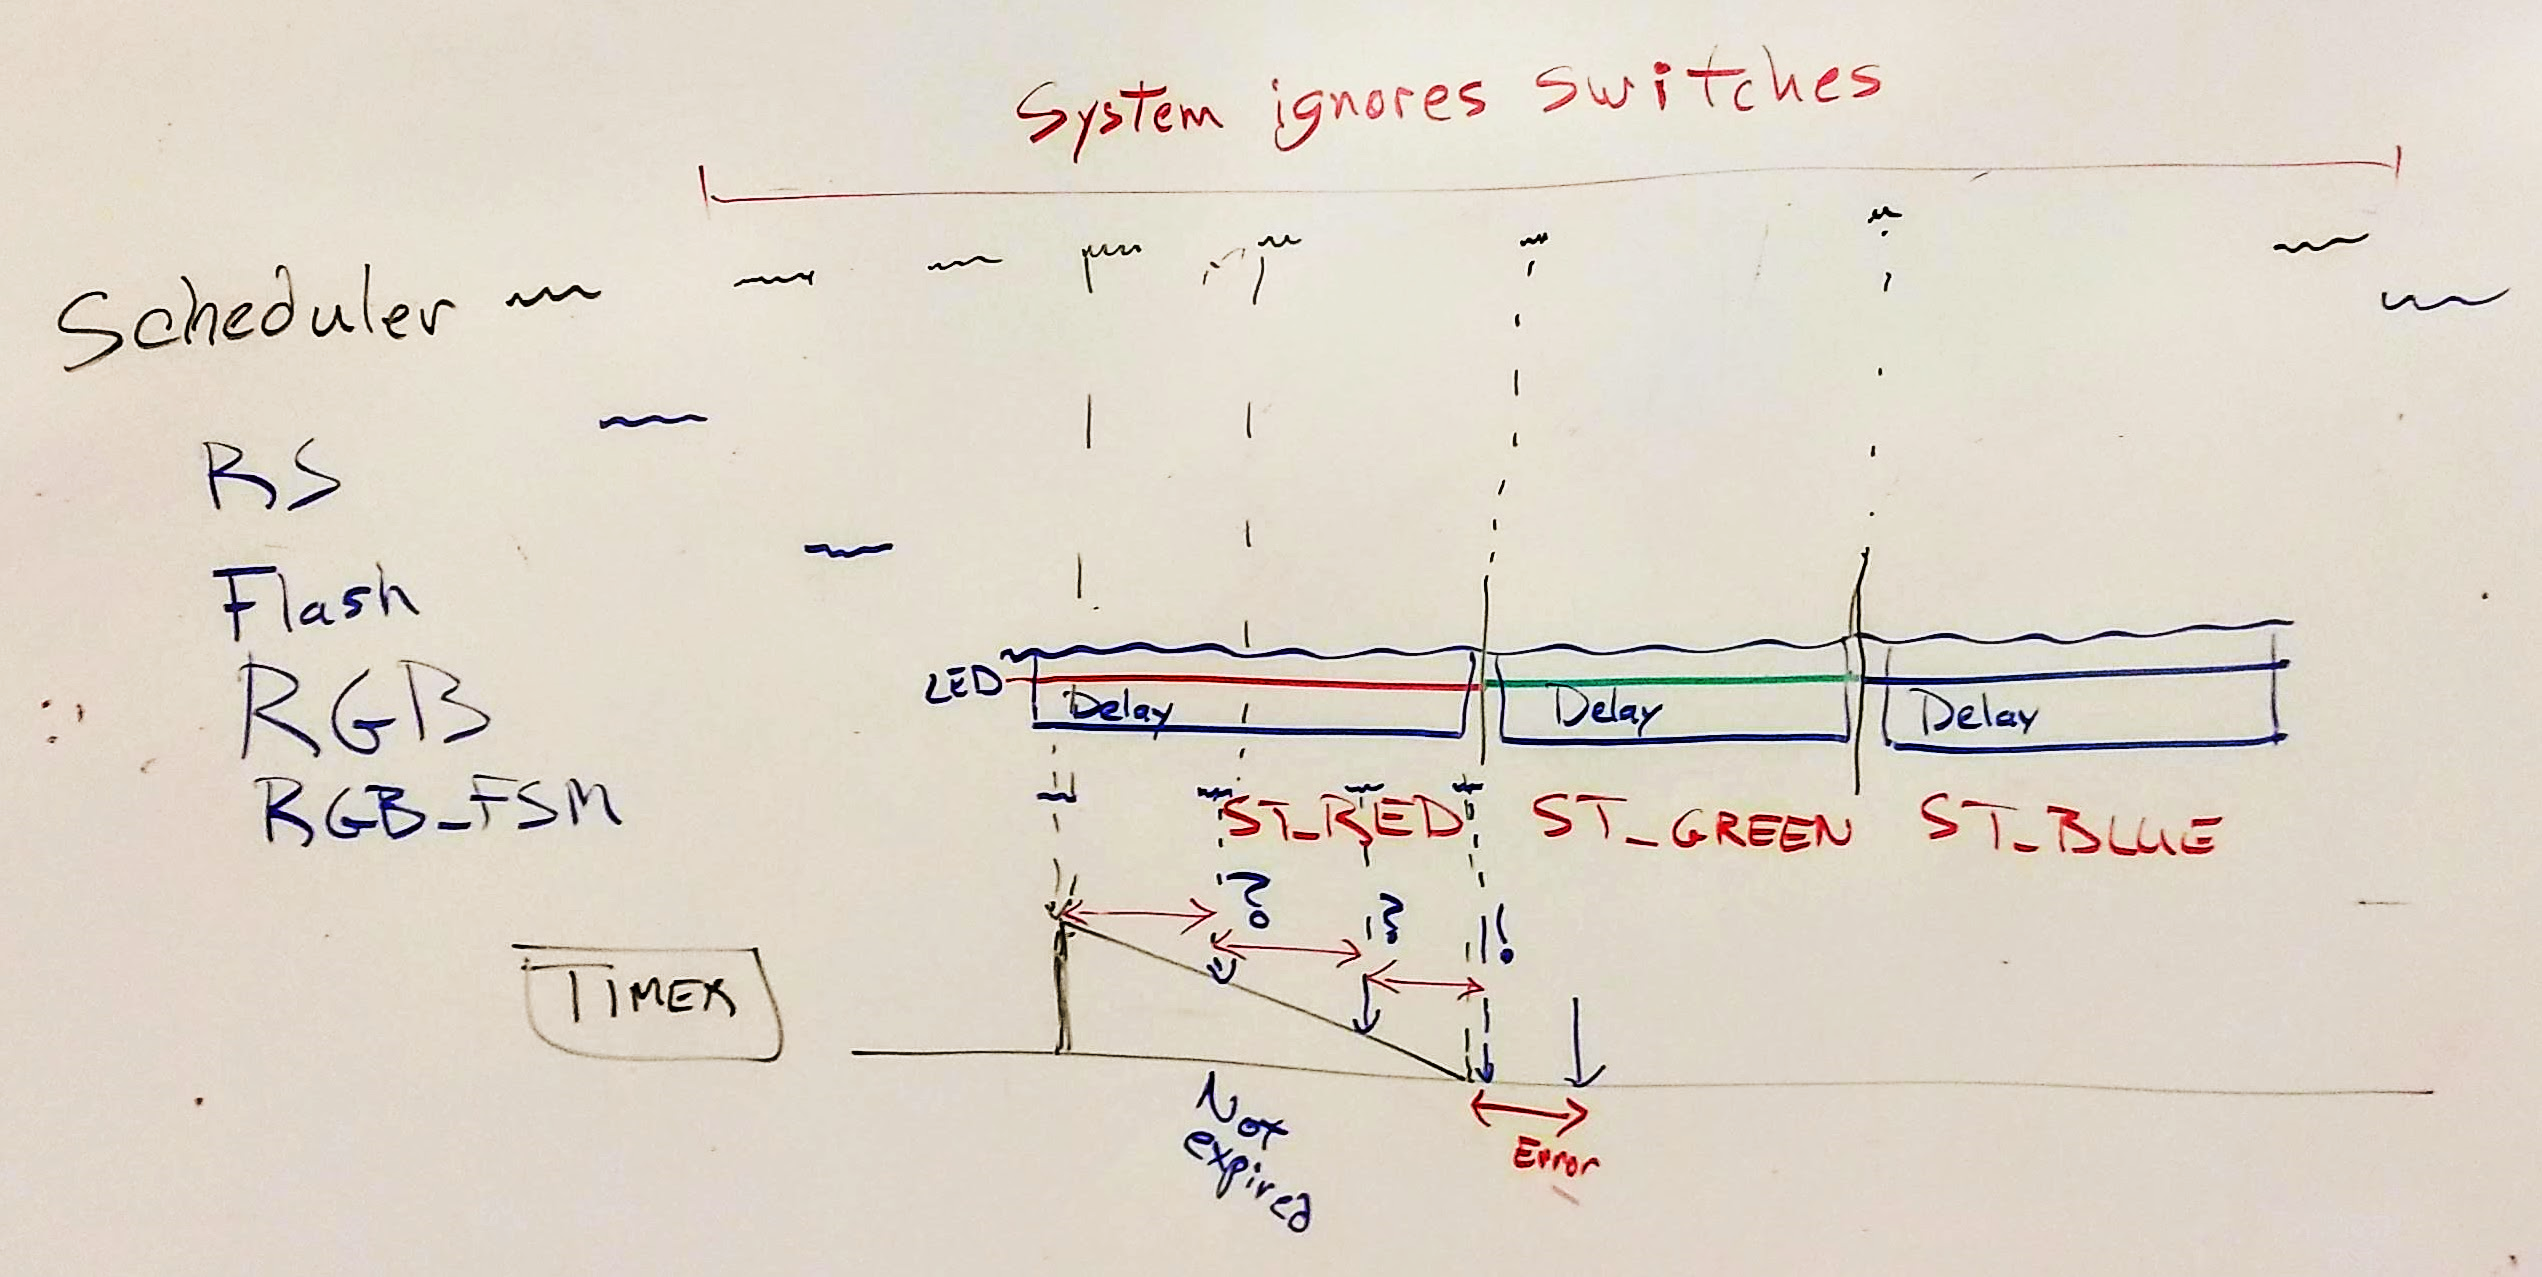 System ignores switches
Scheduler
RS
Flash
LED
RGB
Delay Delay Delay
RGB_FSM
ST_RED ST_GREEN ST_BLUE
? ? !
TIMER
Not
expired
Error